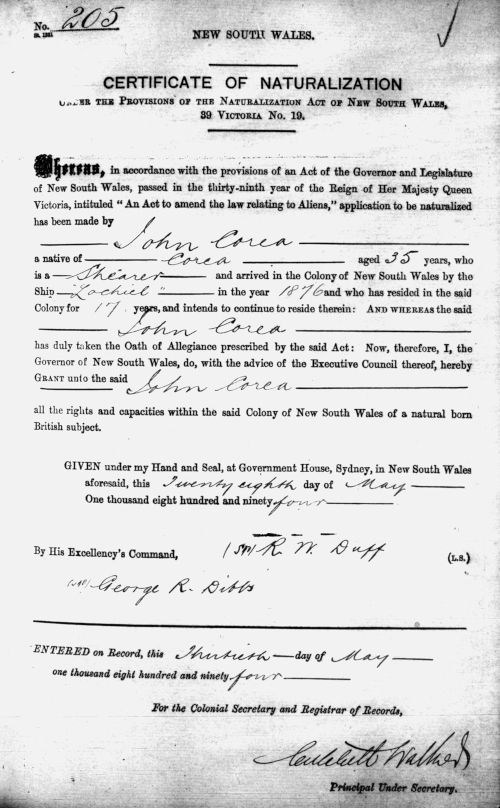 No. 205
NEW SOUTH WALES.
CERTIFICATE OF NATURALIZATION
UNDER THE PROVISIONS OF THE NATURALIZATION ACT OF NEW SOUTH WALES,
39 VICTORIA No. 19.
Whereas, in accordance with the provisions of an Act of the Governor and Legislature
of New South Wales, passed in the thirty-ninth year of the Reign of Her Majesty Queen
Victoria, intituled "An Act to amend the law relating to Aliens," application to be naturalized
has been made by
John Corea
a native of Corea aged 35 years, who
is a Shearer and arrived in the Colony of New South Wales by the
Ship "Lochiel" in the year 1876 and who has resided in the said
Colony for 17 years, and intends to continue to reside therein: AND WHEREAS the said
John Corea
has duly taken the Oath of Allegiance prescribed by the said Act: Now, therefore, I, the
Governor of New South Wales, do, with the advice of the Executive Council thereof, hereby
GRANT unto the said John Corea
all the rights and capacities within the said Colony of New South Wales of a natural born
British subject.
GIVEN under my Hand and Seal, at Government House, Sydney, in New South Wales
aforesaid, this Twenty eighth day of May
One thousand eight hundred and ninety four
By His Excellency's Command, (sgd) R. W. Duff (L.S.)
(sgd) George R. Dibbs
ENTERED on Record, this Thirtieth day of May
one thousand eight hundred and ninety four
For the Colonial Secretary and Registrar of Records,
Critchett Walker
Principal Under Secretary.